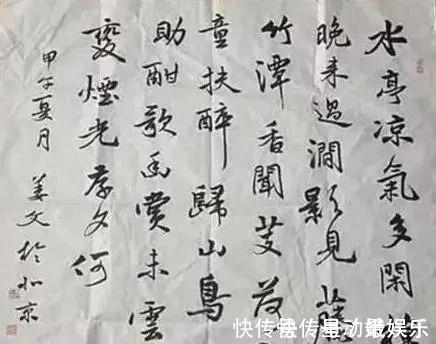 水亭凉氣多閑
晚来過澗影見
竹潭香聞芰荷
童扶醉歸山鳥
助酣歌幽賞未雲
煙光奈夕何
甲午夏月 姜文於北京
快传号
娱乐